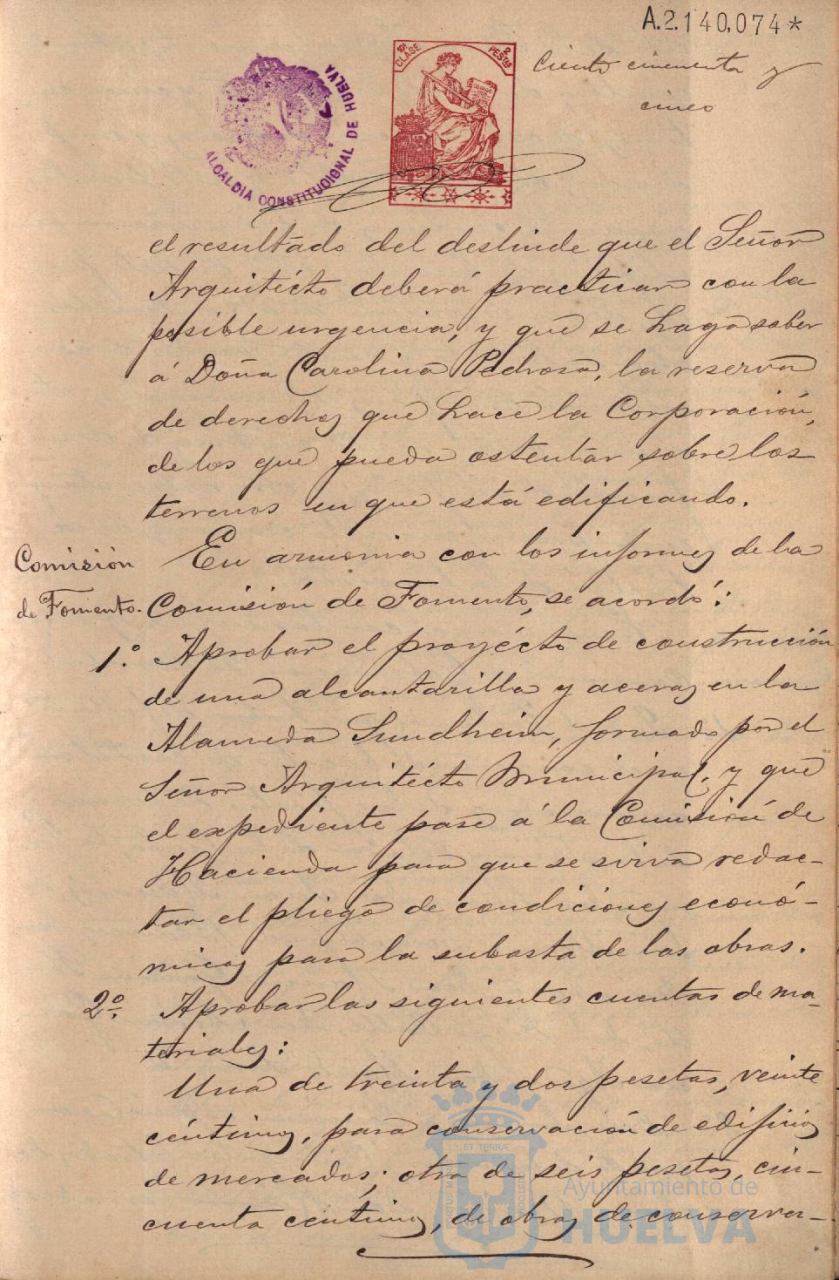 A.2.140.074*
ALCALDIA CONSTITUCIONAL DE HUELVA
10ª CLASE 2 PESTAS
Ciento cincuenta y
cinco
el resultado del deslinde que el Señor
Arquitécto deberá practicar con la
posible urgencia, y que se haga saber
á Doña Carolina Pedrosa, la reserva
de derechos que hace la Corporación,
de los que pueda ostentar sobre los
terrenos en que está edificando.
Comisión
de Fomento.
En armonia con los informes de la
Comisión de Fomento, se acordó:
1.º Aprobar el proyécto de construcción
de una alcantarilla y aceras en la
Alameda Sundheim, formado por el
Señor Arquitécto Municipal, y que
el expediente pase á la Comisión de
Hacienda para que se sirva redac-
tar el pliego de condiciones econó-
micas para la subasta de las obras.
2º. Aprobar las siguientes cuentas de ma-
teriales:
Una de treinta y dos pesetas, veinte
céntimos, para conservación de edificios
de mercados; otra de seis pesetas, cin-
cuenta céntimos, de obras de conserva-
Ayuntamiento de
HUELVA